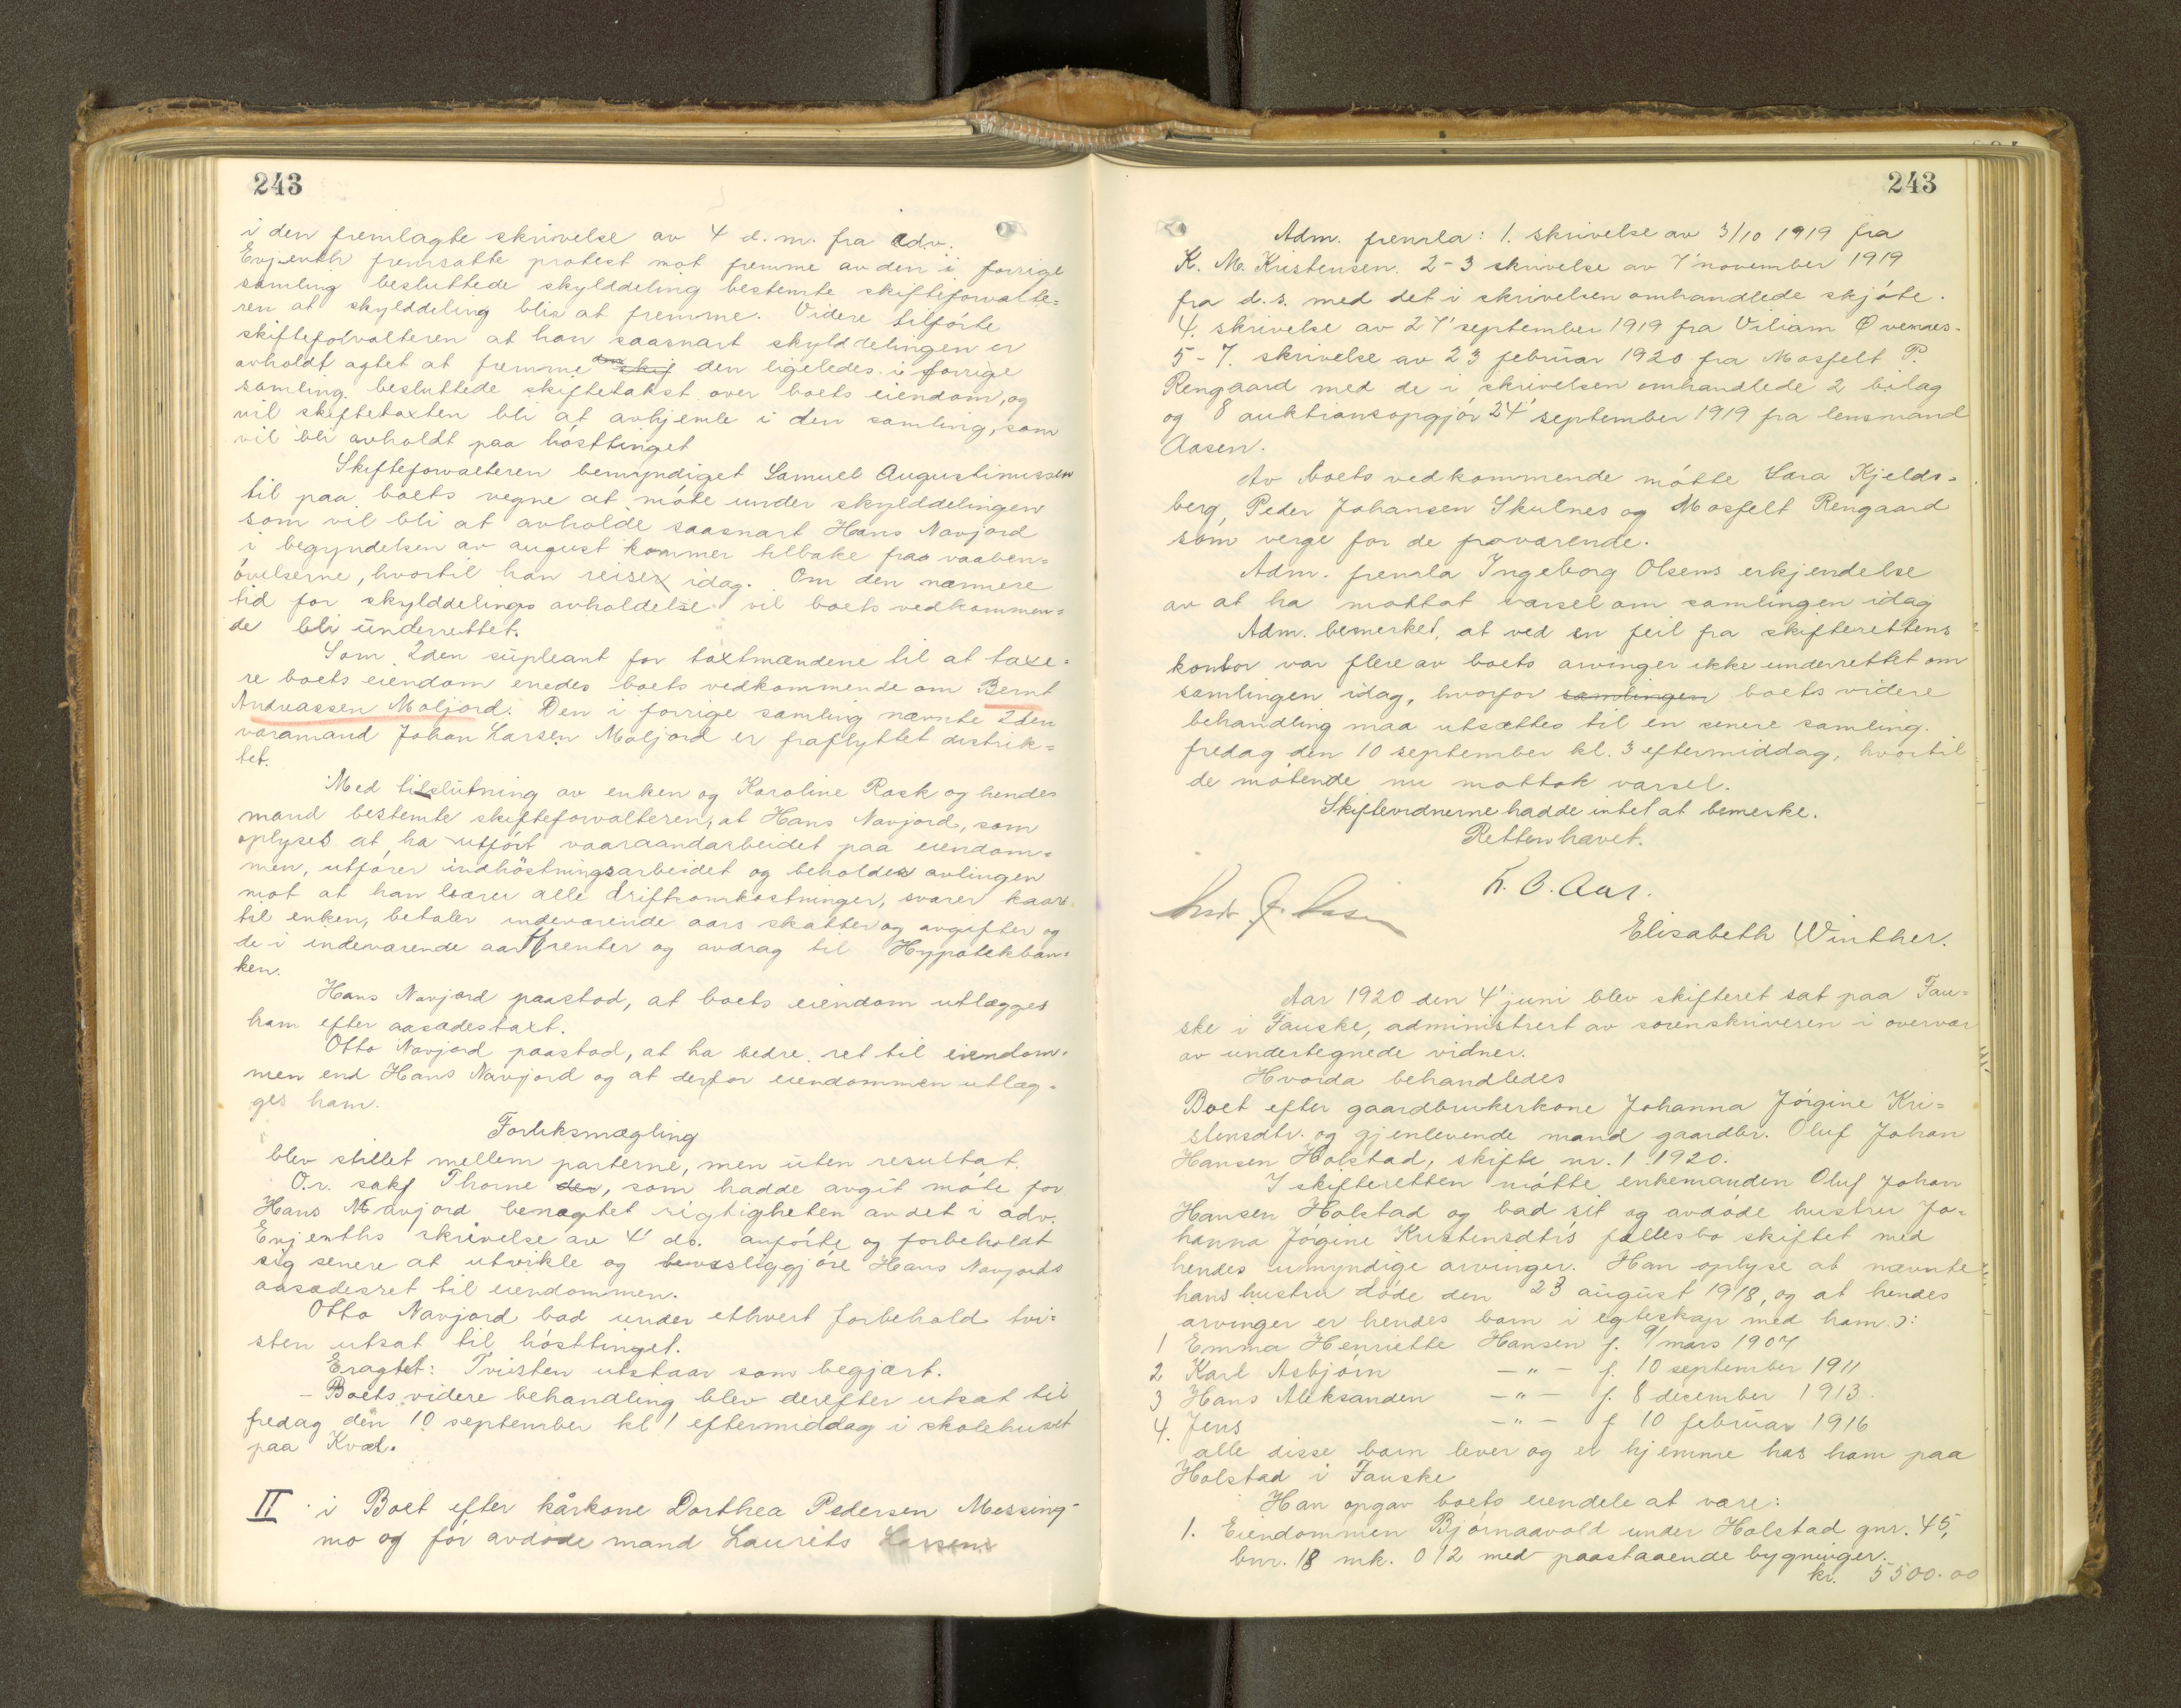 243
i den fremlagte skrivelse av 4 d.m. fra adv.
Evjenth fremsatte protest mot fremme av den i forrige
samling besluttede skylddeling bestemte skifteforvalte=
ren at skylddeling blir at fremme. Videre tilförte
skifteforvalteren at han saasnart skylddelingen er
avholdt agtet at fremme den skif den ligeledes i forrige
samling besluttede skiftetakst over boets eiendom, og
vil skiftetaxten bli at avhjemle i den samling, som
vil bli avholdt paa hösttinget
Skifteforvalteren bemyndiget Samuel Augustinussen
til paa boets vegne at möte under skylddelingen
som vil bli at avholde saasnart Hans Navjord
i begyndelsen av august kommer tilbake fraa vaaben=
övelserne, hvortil han reiser idag. Om den nærmere
tid for skylddelings avholdelse vil boets vedkommen=
de bli underrettet.
Som 2den supleant for taxtmændene til at taxe=
re boets eiendom enedes boets vedkommende om Bernt
Andreassen Moljord. Den i forrige samling nævnte 2den
varamand Johan Larsen Moljord er fraflyttet distrik=
tet.
Med tilslutning av enken og Karoline Rask og hendes
mand bestemte skifteforvalteren, at Hans Navjord, som
oplyses at ha utfört vaaraandarbeidet paa eiendom=
men, utförer indhöstningsarbeidet og beholder avlingen
mot at han bærer alle driftsomkostninger, svarer kaar
til enken, betaler indeværende aars skatter og avgifter og
de i indeværende aar renter og avdrag til Hypotekban=
ken.
Hans Navjord paastod, at boets eiendom utlægges
ham efter aasædestaxt.
Otto Navjord paastod, at ha bedre ret til eiendom=
men end Hans Navjord og at derfor eiendommen utlæg=
ges ham.
Forliksmægling
blev stillet mellem parterne, men uten resultat.
O.r. sakf Thorne der, som hadde avgit möte for
Hans Navjord benægtet rigtigheten av det i adv.
Evjenths skrivelse av 4' ds. anförte og forbeholdt
sig senere at utvikle og bevisliggjöre Hans Navjords
aasædesret til eiendommen.
Otto Navjord bad under ethvert forbehold tvi=
sten utsat til hösttinget.
Eragtet: Tvisten utstaar som begjært.
– Boets videre behandling blev derefter utsat til
fredag den 10 september kl 1 eftermiddag i skolehuset
paa Kvæl.
II i Boet efter kårkone Dorthea Pedersen Messing-
mo og för avdöde mand Laurits Larsens
243
Adm. fremla: 1. skrivelse av 3/10 1919 fra
K. M. Kristensen. 2-3 skrivelse av 7' november 1919
fra d.s. med det i skrivelsen omhandlede skjöte.
4. skrivelse av 27' september 1919 fra Viliam Øvenes-
5-7. skrivelse av 23 februar 1920 fra Mosfelt P.
Rengaard med de i skrivelsen omhandlede 2 bilag
og 8 auktionsopgjör 24' september 1919 fra lensmand
Aasen.
Av boets vedkommende mötte Lara Kjelds=
berg, Peder Johansen Skulnes og Mosfelt Rengaard
som verge for de fraværende.
Adm. fremla Ingeborg Olsens erkjendelse
av at ha mottat varsel om samlingen idag
Adm. bemerket, at ved en feil fra skifterettens
kontor var flere av boets arvinger ikke underrettet om
samlingen idag, hvorfor samlingen boets videre
behandling maa utsættes til en senere samling.
fredag den 10 september kl. 3 eftermiddag, hvortil
de mötende nu mottok varsel.
Skiftevidnerne hadde intet at bemerke.
Retten hævet.
K. O. Aar.
Elisabeth Winther.
Aar 1920 den 4' juni blev skifteret sat paa Fau=
ske i Fauske, administrert av sorenskriveren i overvær
av undertegnede vidner.
Hvorda behandledes
Boet efter gaardbrukerkone Johanna Jörgine Kri=
stensdtr. og gjenlevende mand gaardbr. Oluf Johan
Hansen Holstad, skifte nr. 1. 1920.
I skifteretten mötte enkemanden Oluf Johan
Hansen Holstad og bad sit og avdöde hustru Jo=
hanna Jörgine Kristensdtrs fællesbo skiftet med
hendes umyndige arvinger. Han oplyse at nævnte
hans hustru döde den 23 august 1918, og at hendes
arvinger er hendes barn i egteskap med ham ɔ:
1 Emma Henriette Hansen f. 9/ mars 1907
2 Karl Asbjörn –"– f. 10 september 1911
3 Hans Aleksanden –"– f. 8 december 1913
4. Jens –"– f 10 februar 1916
alle disse barn lever og er hjemme hos ham paa
Holstad i Fauske
Han opgav boets eiendele at være:
1. Eiendommen Björnaavold under Holstad gnr. 45,
bnr. 18 mk. 0 12 med paastaaende bygninger.
kr. 5500.00